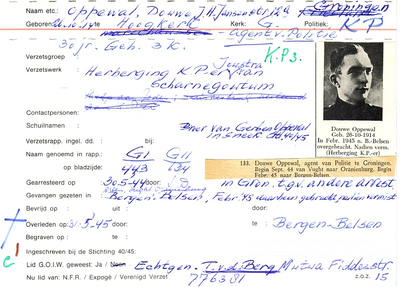 Naam etc.: Oppewal, Douwe J.H. Jansenstr. 12a Groningen
Geboren: 26.10.14 Hoogkerk Kerk: G. Politiek: K.P.
Agent v. Politie
30 jr. Geh. 3 K. K.P. 3.
Verzetsgroep
Verzetswerk Herberging K.P. er van Jowstra
Scharnegoutum
Contactpersonen:
Schuilnamen : Broer van Gerben Oppewal
Verzetsrapp. ingel. dd. : bij: in Sneek
Naam genoemd in rapp.: GI GII
op bladzijde : 443 134
Douwe Oppewal
Geb. 26-10-1914
In Febr. 1945 n. B.-Belsen
overgebracht. Nadien verm.
(Herberging K.P.-er)
133. Douwe Oppewal, agent van Politie te Groningen.
Begin Sept. 44 van Vught naar Oranienburg. Begin
Febr. 45 naar Bergen-Belsen.
Gearresteerd op : 30-5-44 door: in Gron. t.g.v. andere arrest.
Gevangen gezeten in: Bergen-Belsen, Febr. 45 daarheen gebracht, nadien vermist
Bevrijd op : uit :
Overleden op: 31-3-45 door : te : Bergen-Belsen
Begraven op : te :
Ingeschreven bij de Stichting 40/45:
Lid G.O.I.W. geweest: Ja / Echtgen. T. v.d. Berg
Nu lid van: N.F.R. / Expogé / Verenigd Verzet 776381 z.o.z. 15